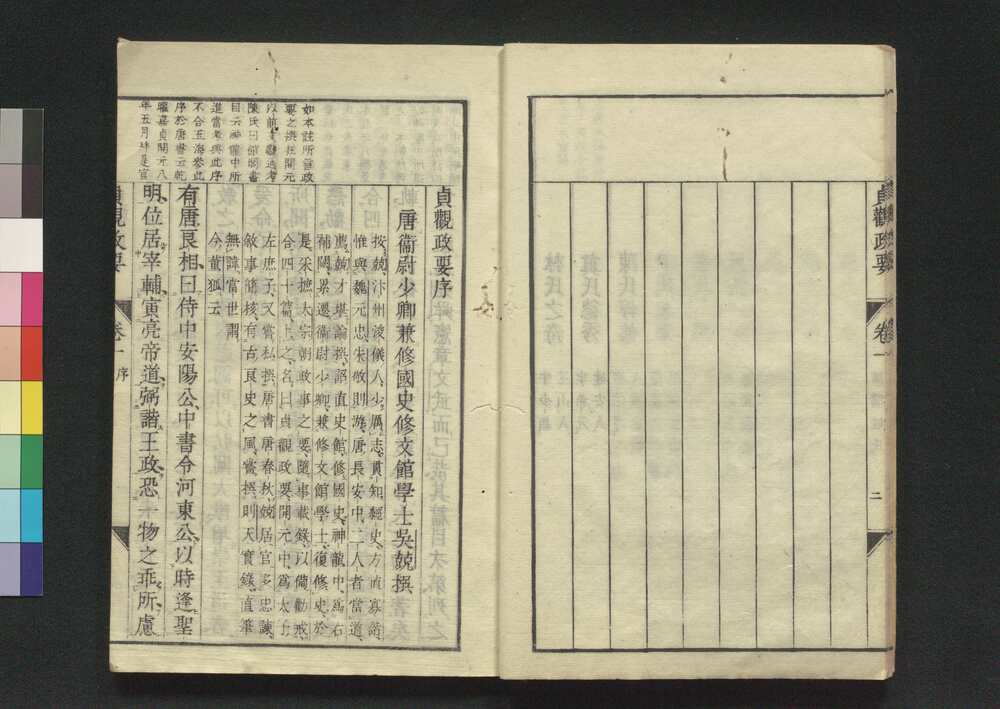 貞觀政要
卷一
二
貞觀政要序
唐衞尉少卿兼修國史修文館學士吳兢撰
按、兢、汴州浚儀人、少厲志、貫知經史、方直寡諧、
惟與魏元忠、朱敬則游、唐長安中、二人者當道、
薦、兢才堪論撰、詔直史館、修國史、神龍中、爲右
補闕、累遷衞尉少卿、兼修文館學士、復修史、於
是、采摭太宗朝政事之要、隨事載錄、以備勸戒、
合四十篇、上之、名曰貞觀政要、開元中、爲太子
左庶子、又嘗私撰唐書唐春秋、兢居官多忠諫、
敘事簡核、有古良史之風、嘗撰則天實錄、直筆
無諱、當世謂
今董狐云
有唐良相、曰侍中安陽公、中書令河東公、以時逢聖
明、位居宰輔、寅亮帝道、弼諧王政、恐一物之乖所、慮
如本註所言政
要之撰在開元
以前
陳氏曰
目云神龍中所
進當考與此序
不合
序於唐書云乾
曜嘉貞開元八
年五月
貞觀政要
卷一
序